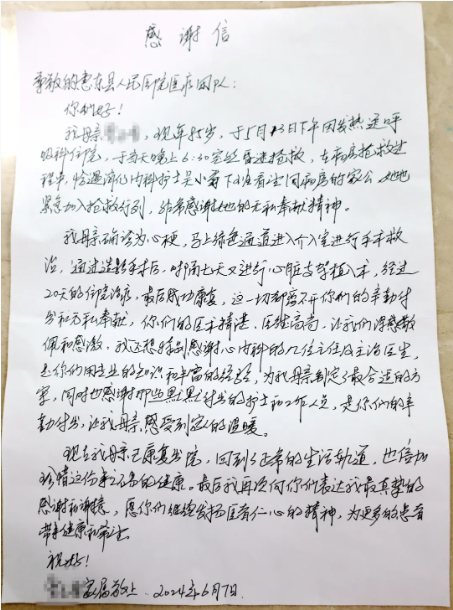 感谢信
尊敬的惠东县人民医院医疗团队：
你们好！
我母亲，现年85岁，于5月13日下午因发热送呼
吸科住院，于当天晚上6:30突然昏迷抢救，在病房抢救过
程中，恰遇消化内科护士吴小霞下班看望同病房的家公，她也
紧急加入抢救行列，非常感谢她的无私奉献精神。
我母亲确诊为心梗，马上绿色通道进入介入室进行手术救
治，通过造影手术后，时隔七天又进行心脏支架植入术，经过
20天的住院治疗，最后成功康复，这一切都离不开你们的辛勤付
出和无私奉献，你们的医术精湛，医德高尚，让我们深感敬
佩和感激，我还想特别感谢心内科的几位主任及主治医生，
是你们用专业的知识和丰富的经验，为我母亲制定了最合适的方
案，同时也感谢那些默默付出的护士和工作人员，是你们的辛
勤付出，让我母亲感受到家人的温暖。
现在我母亲已康复出院，回到了正常的生活轨道，也倍加
珍惜这份来之不易的健康。最后我再次向你们表达我最真挚的
感谢和谢意，愿你们继续发扬医者仁心的精神，为更多的患者
带来健康和希望。
祝好！
家属敬上 2024年6月7日